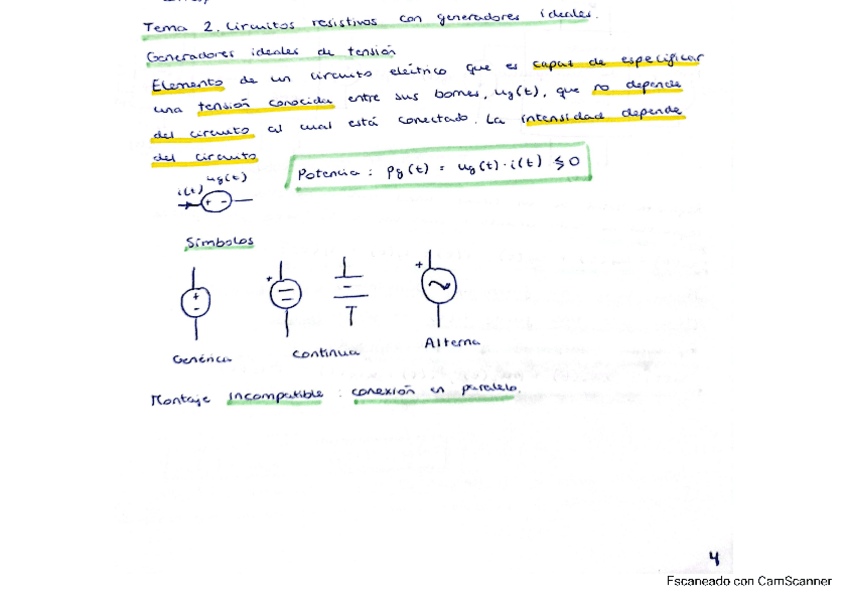 Tema 2. Circuitos resistivos con generadores ideales.
Generadores ideales de tensión
Elemento de un circuito eléctrico que es capaz de especificar
una tensión conocida entre sus bornes, ug(t), que no depende
del circuito al cual está conectado. La intensidad depende
del circuito
Potencia : pg(t) = ug(t)·i(t) ≶ 0
ug(t)
i(t)
+ -
Símbolos
+
-
+
+
Genérica
Continua
Alterna
Montaje incompatible : conexión en paralelo.
4
Escaneado con CamScanner